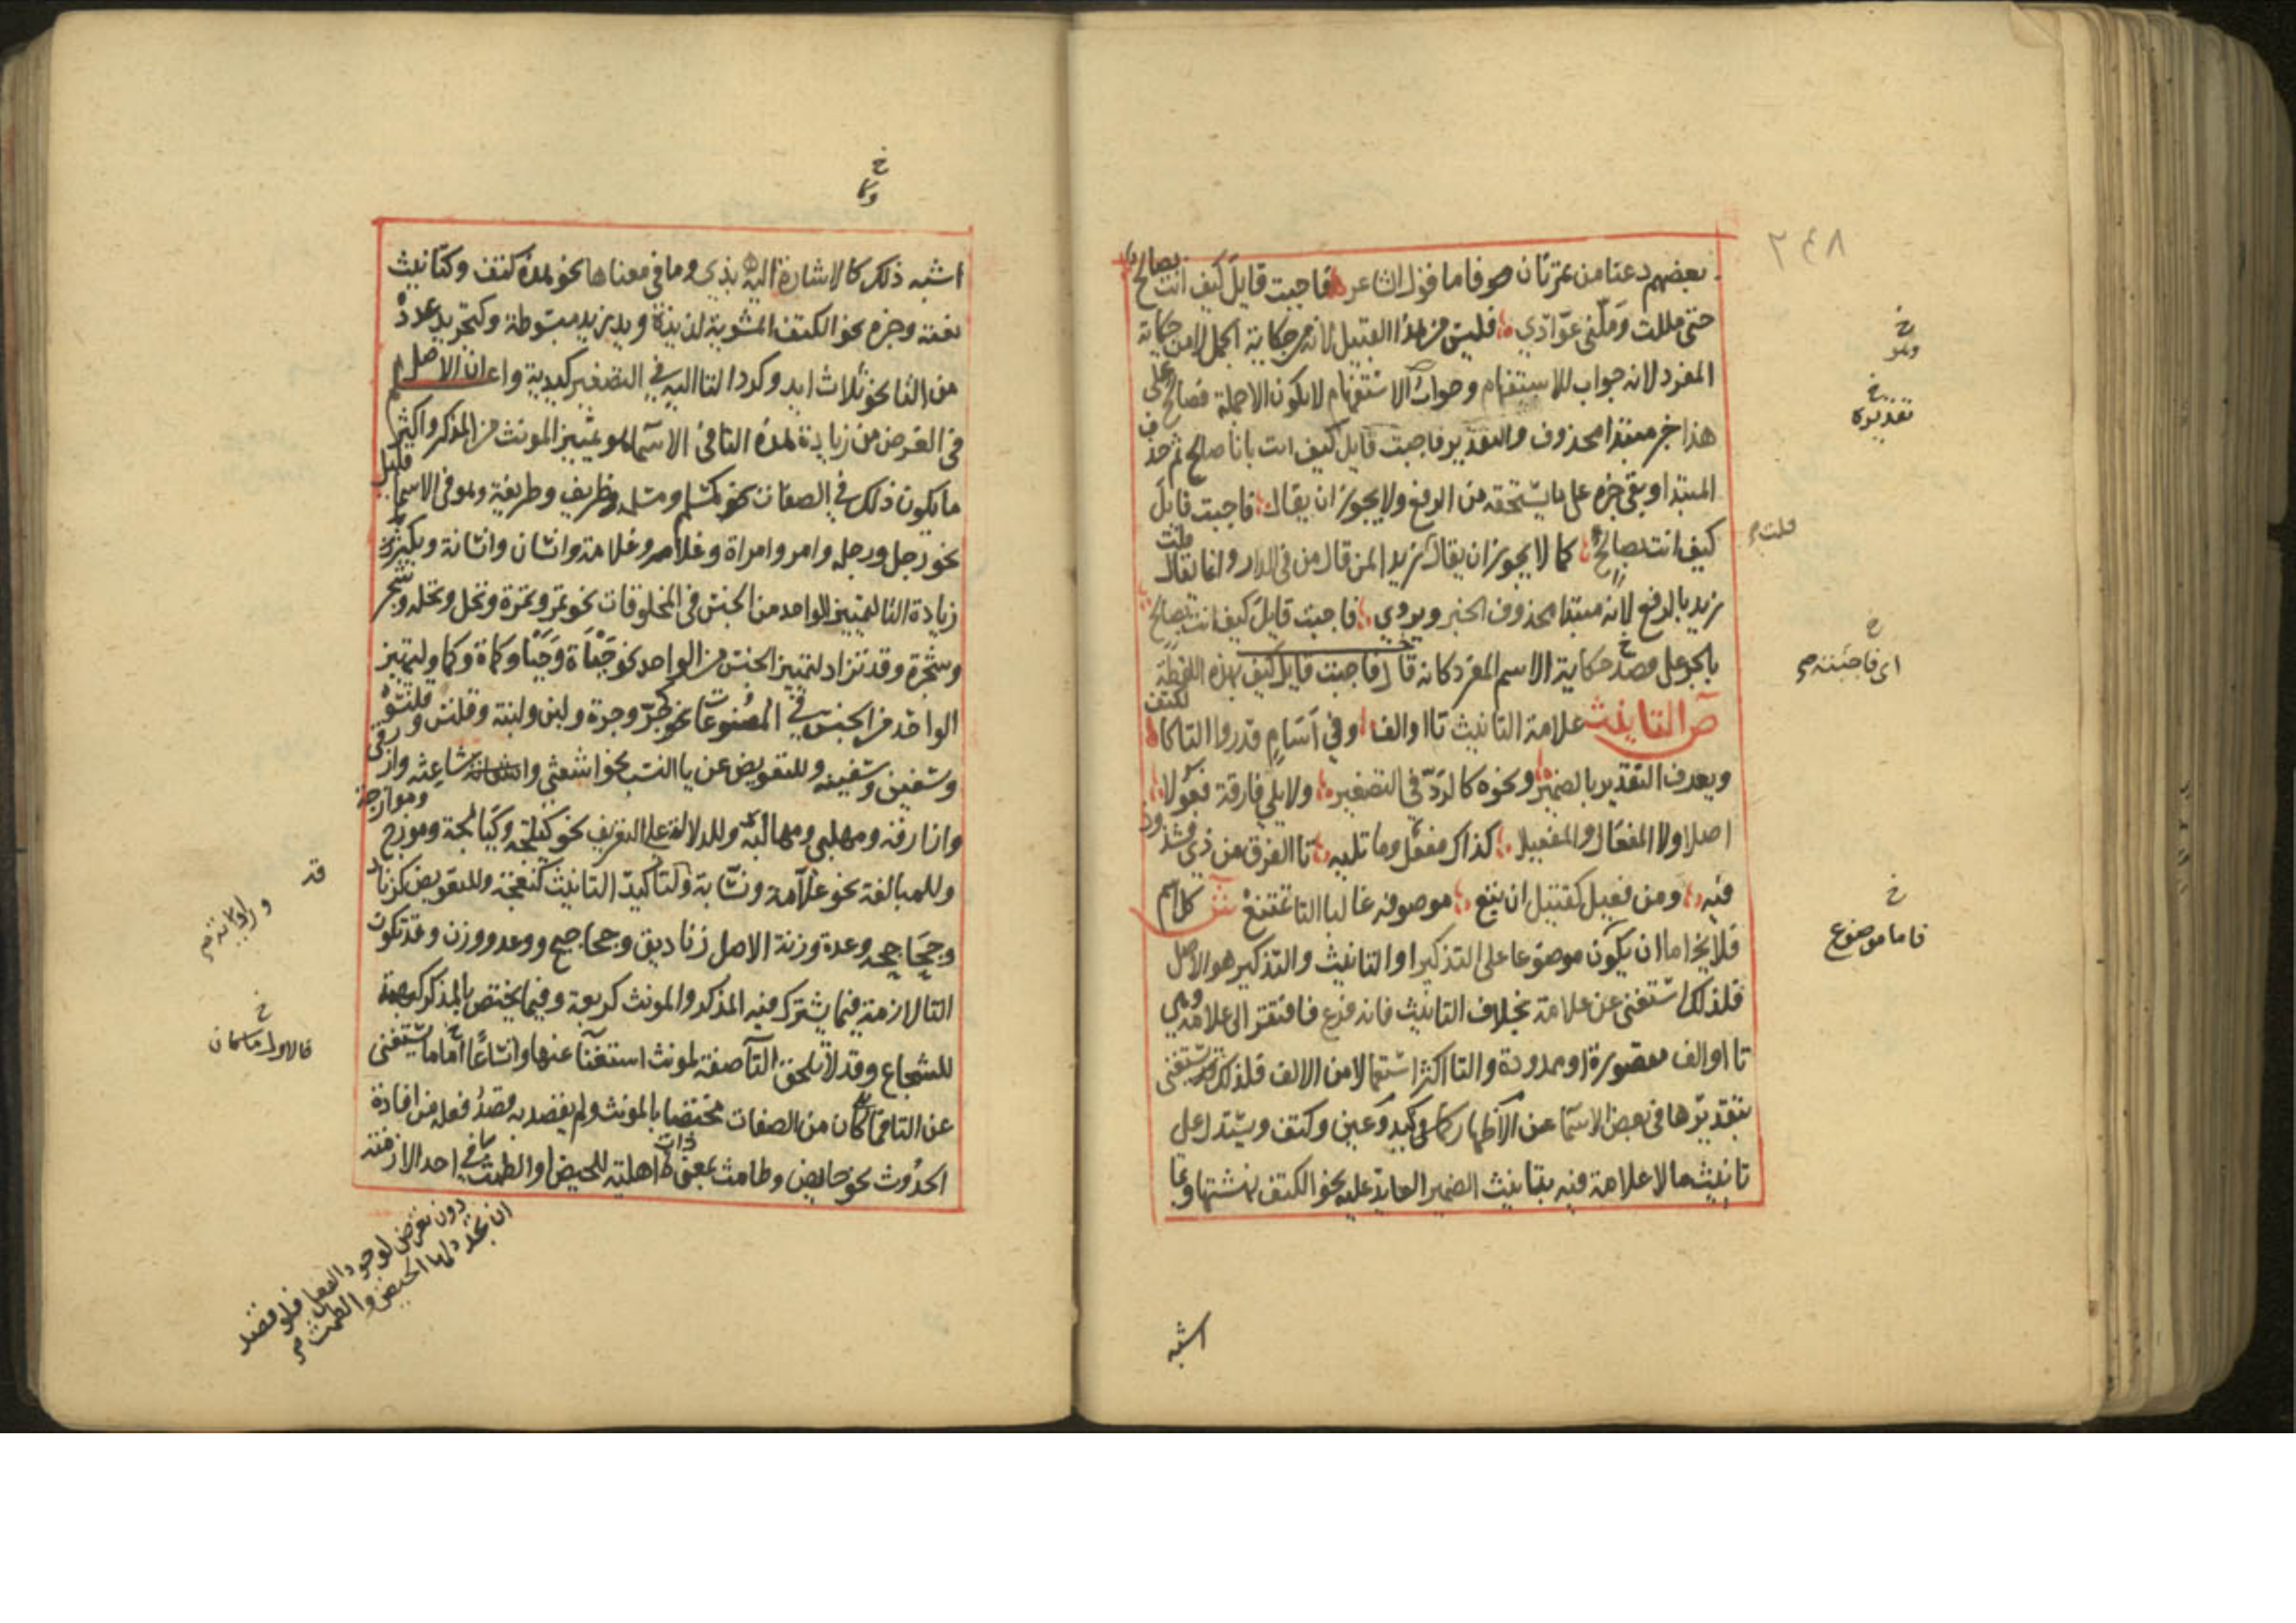 ٢٤٨
بعضهم دعنا من تمرتان صوفاما قول الشاعر فاجبت قايل كيف انت بصالح
حتى مللت وملني عوادي فليس من هذا القبيل لانه من حكاية الجمل لا من حكاية
المفرد لانه جواب للاستفهام وجواب الاستفهام لا يكون الا جملة فصالح على
هذا خبر مبتدا محذوف والتقدير فاجبت قايل كيف انت بانا صالح ثم حذف
المبتدا وبقي خبره على ما يستحقه من الرفع ولا يجوز ان يقال فاجبت قايل
كيف انت بصالح كما لا يجوز ان يقال زيدا لمن قال من في الدار وانما يقال
زيد بالرفع لانه مبتدا محذوف الخبر ويروي فاجبت قايل كيف انت بصالح
بالجر على قصد حكاية الاسم المفرد كانه قال فاجبت قايل كيف بهذه اللفظة
ص التانيث علامة التانيث تا او الف وفي اسام قدروا التا كالكتف
ويعرف التقدير بالضمير ونحوه كالرد في التصغير ولا يلي فارقة فعولا
اصلا ولا المفعال والمفعيلا كذاك مفعل وما تليه تا الفرق من ذي فشذوذ
فيه ومن فعيل كقتيل ان تبع موصوفه غالبا التا تمتنع ش كل اسم
فلا يخ اما ان يكون موضوعا على التذكير او التانيث والتذكير هو الاصل
فلذلك استغنى عن علامة بخلاف التانيث فانه فرع فافتقر الى علامة وهي
تا او الف مقصورة او ممدودة والتا اكثر استعمالا من الالف فلذلك يستغنى
بتقديرها في بعض الاسما عن الاظهار كما في كبد وعين وكتف ويستدل على
تانيث ما لا علامة فيه بتانيث الضمير العايد عليه نحو الكتف نهشتها وبما
خ
وهو
خ
تقديره
قلت
خ
اى فاجبته
خ
فاما موضوع
اشبه
خ
وكا
اشبه ذلك كالاشارة اليه بذي وما في معناها نحو هذه كتف وكتانيث
نعته وخبره نحو الكتف المشوية لذيذة ويد زيد مبسوطة وكتجريد عدده
من التا نحو ثلاث ايد وكرد التا اليه في التصغير كيدية واعلم ان الاصل
في الغرض من زيادة هذه التا في الاسما هو تمييز المونث من المذكر واكثر
ما يكون ذلك في الصفات نحو مسلم ومسلمة وظريف وظريفة وهو في الاسما قليل
نحو رجل ورجلة وامرء وامراة وغلام وغلامة وانسان وانسانة ويكثر
زيادة التا لتمييز الواحد من الجنس في المخلوقات نحو تمر وتمرة ونخل ونخلة وشجر
وشجرة وقد تزاد لتمييز الجنس من الواحد نحو جباة وجبا وكماة وكما ولتمييز
الواحد من الجنس في المصنوعات نحو جر وجرة ولبن ولبنة وقلنس وقلنسوة
وسفين وسفينة وللتعويض عن يا النسب نحو اشعثي واشاعثة وازرقي
وازارقة ومهلبي ومهالبة وللدلالة على التعريب نحو كيلجة وكيالجة وموزج وموازجة
وللمبالغة نحو علامة ونسابة ولتاكيد التانيث كنعجة وللتعويض كزنادقة
وجحاجحة وعدة وزنة الاصل زناديق وجحاجيح ووعد ووزن وقد تكون
التا لازمة فيما يشترك فيه المذكر والمونث كربعة وفيما يختص بالمذكر كبهمة
للشجاع وقد لا تلحق التا صفة لمونث استغنا عنها واتساعا اما ما يستغنى
عن التا فما كان من الصفات مختصا بالمونث ولم يقصد به قصد فعله من افادة
الحدوث نحو حايض وطامث بمعنى ذات اهلية للحيض او الطمث في احد الازمنة
قد
خ
فالاول ما كان
دون تعرض لوجود الفعل فلو قصد
ان تجدد لها الحيض والطمث